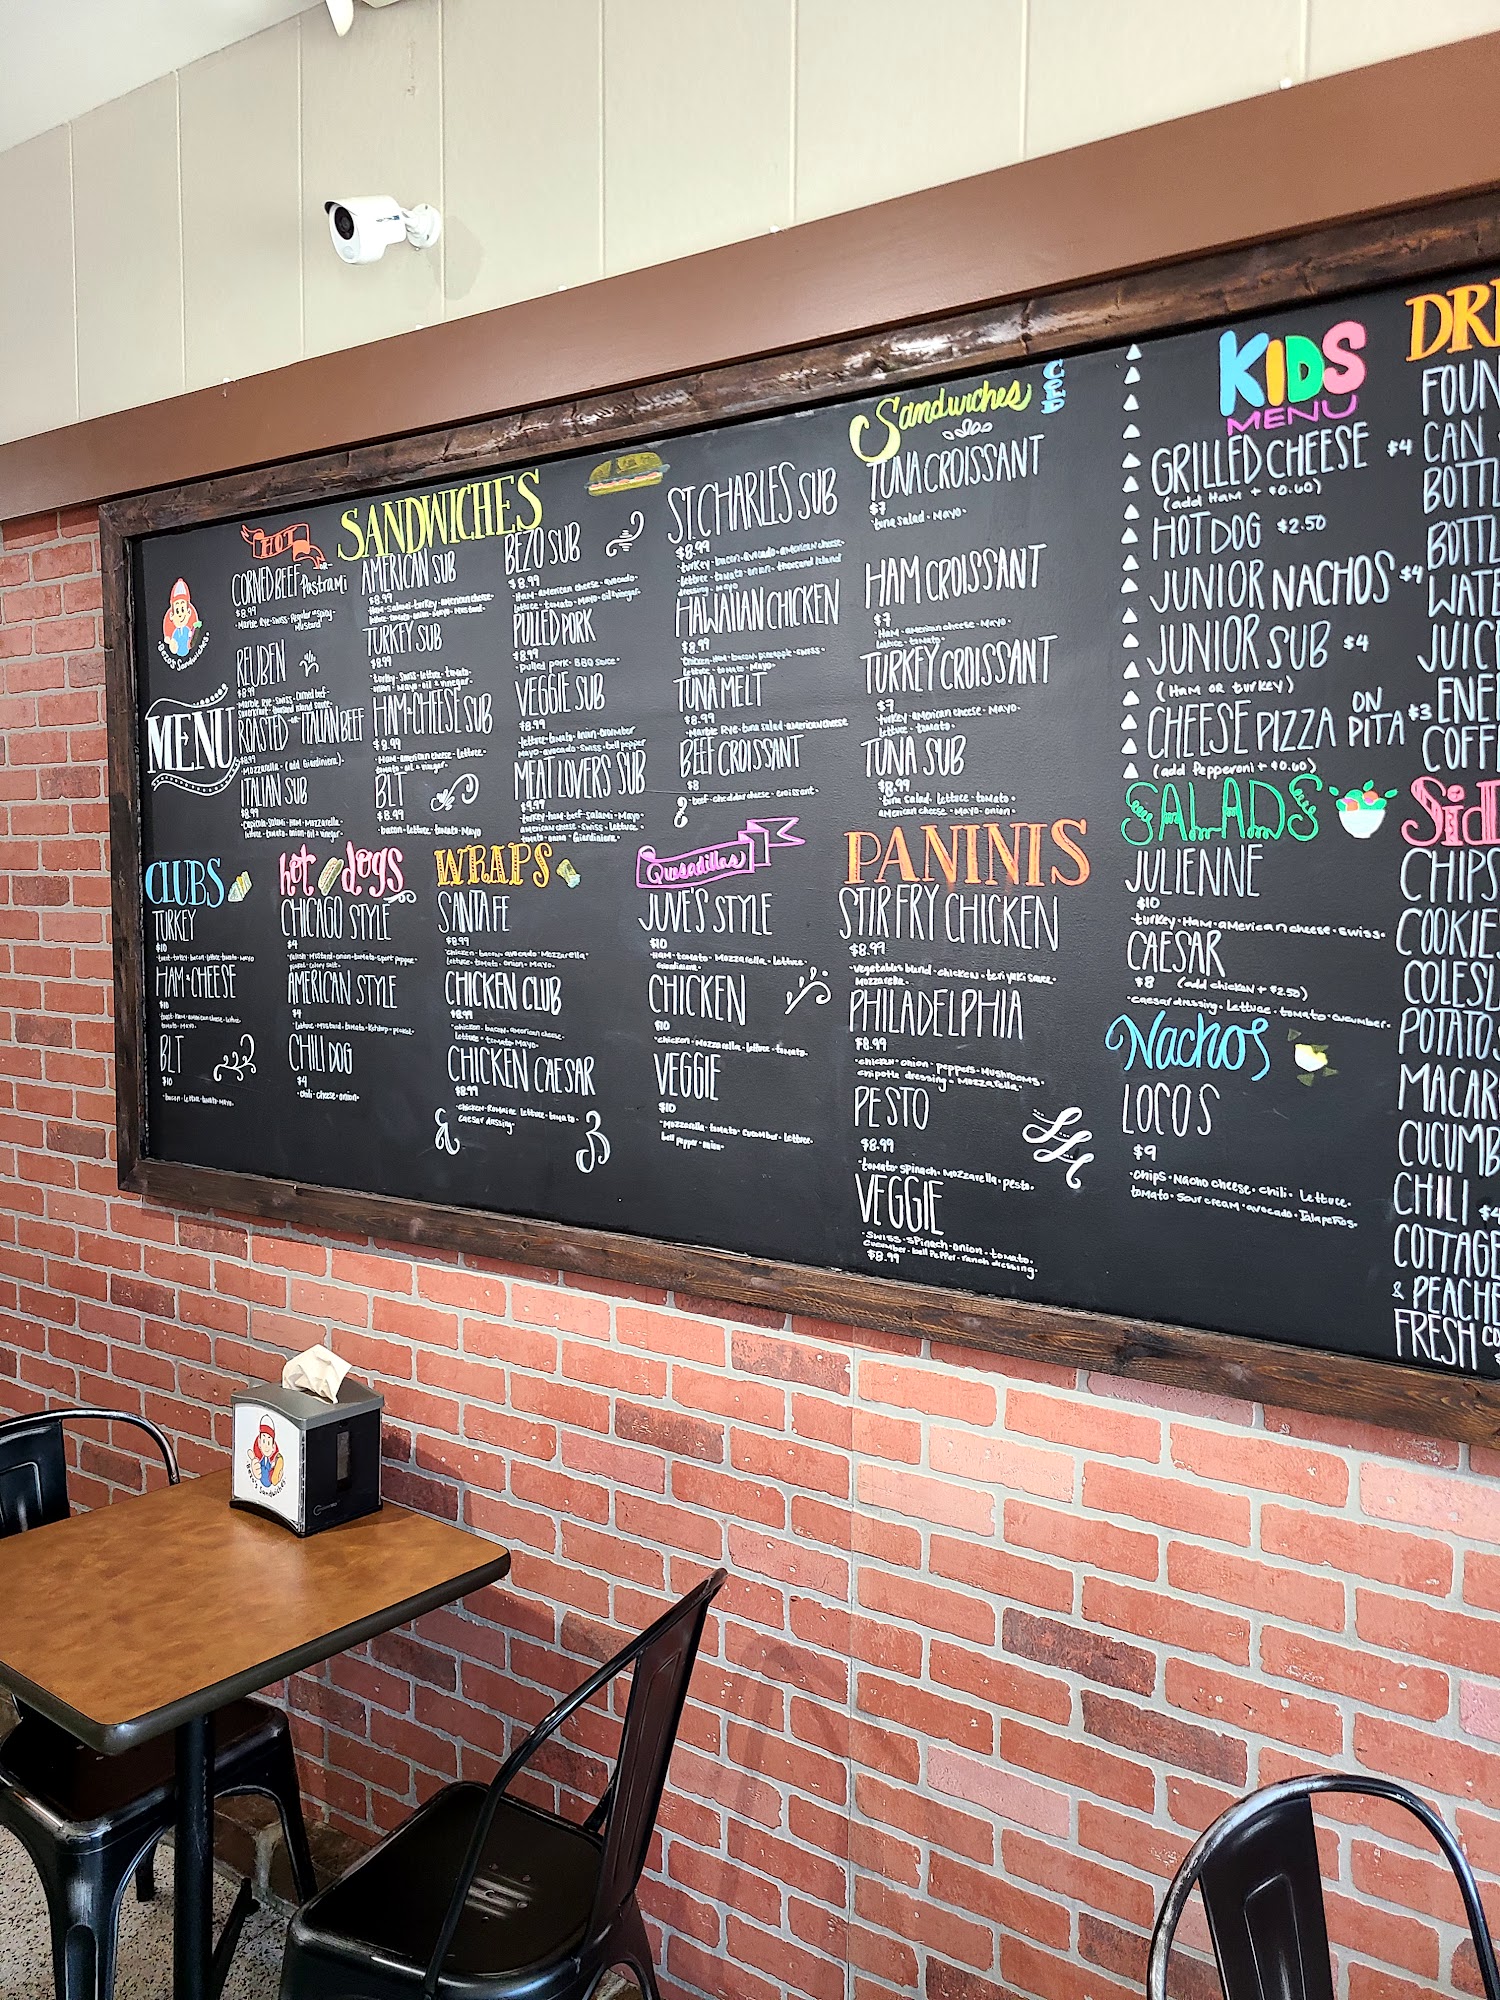 MENU
Bezo's Sandwiches
HOT
SANDWICHES
CORNED BEEF or Pastrami
$8.99
Marble Rye · Swiss · Regular or Spicy
Mustard
REUBEN
$8.99
Marble Rye · Swiss · Corned beef
sauerkraut · thousand island sauce
ROASTED or ITALIAN BEEF
$8.99
Mozzarella · (add Giardiniera)
ITALIAN SUB
$8.99
Capicola · Salami · Ham · Mozzarella
lettuce · tomato · onion · oil & vinegar
AMERICAN SUB
$8.99
Ham · Salami · turkey · american cheese
TURKEY SUB
$8.99
turkey · Swiss · lettuce · tomato
onion · Mayo · oil & vinegar
HAM & CHEESE SUB
$8.99
Ham · american cheese · lettuce
tomato · oil & vinegar
BLT
$8.99
bacon · lettuce · tomato · Mayo
BEZO SUB
$8.99
Ham · american cheese · avocado
lettuce · tomato · Mayo · oil & vinegar
PULLED PORK
$8.99
Pulled pork · BBQ sauce
VEGGIE SUB
$8.99
lettuce · tomato · onion · cucumber
Mayo · avocado · swiss · bell pepper
MEAT LOVERS SUB
$9.99
turkey · ham · beef · salami · Mayo
american cheese · swiss · lettuce
tomato · onion · Giardiniera
ST. CHARLES SUB
$8.99
turkey · bacon · avocado · american cheese
lettuce · tomato · onion · thousand island
dressing · Mayo
HAWAIIAN CHICKEN
$8.99
Chicken · Ham · bacon · pineapple · swiss
lettuce · tomato · Mayo
TUNA MELT
$8.99
Marble Rye · tuna salad · american cheese
BEEF CROISSANT
$8
beef · cheddar cheese · croissant
Sandwiches
COLD
TUNA CROISSANT
$7
tuna salad · Mayo
HAM CROISSANT
$7
Ham · american cheese · Mayo
lettuce · tomato
TURKEY CROISSANT
$7
turkey · american cheese · Mayo
lettuce · tomato
TUNA SUB
$8.99
tuna salad · lettuce · tomato
american cheese · Mayo · onion
KIDS
MENU
GRILLED CHEESE $4
(add Ham + $0.60)
HOT DOG $2.50
JUNIOR NACHOS $4
JUNIOR SUB $4
(Ham or turkey)
CHEESE PIZZA ON PITA $3
(add Pepperoni + $0.60)
CLUBS
TURKEY
$10
toast · turkey · bacon · lettuce · tomato · Mayo
HAM & CHEESE
$10
toast · ham · american cheese · lettuce
tomato · Mayo
BLT
$10
bacon · lettuce · tomato · Mayo
hot dogs
CHICAGO STYLE
$4
relish · Mustard · onion · tomato · sport pepper
pickle · celery salt
AMERICAN STYLE
$4
lettuce · Mustard · tomato · Ketchup · pickle
CHILI DOG
$4
chili · cheese · onion
WRAPS
SANTA FE
$8.99
chicken · bacon · avocado · Mozzarella
lettuce · tomato · onion · Mayo
CHICKEN CLUB
$8.99
chicken · bacon · american cheese
lettuce · tomato · Mayo
CHICKEN CAESAR
$8.99
chicken · Romaine lettuce · tomato
caesar dressing
Quesadillas
JUVE'S STYLE
$10
Ham · tomato · Mozzarella · lettuce
Giardiniera
CHICKEN
$10
chicken · Mozzarella · lettuce · tomato
VEGGIE
$10
Mozzarella · tomato · cucumber · lettuce
bell pepper · onion
PANINIS
STIR FRY CHICKEN
$8.99
vegetables blend · chicken · teriyaki sauce
Mozzarella
PHILADELPHIA
$8.99
chicken · onion · peppers · Mushrooms
chipotle dressing · Mozzarella
PESTO
$8.99
tomato · spinach · Mozzarella · pesto
VEGGIE
swiss · spinach · onion · tomato
cucumber · bell pepper · ranch dressing
$8.99
SALADS
JULIENNE
$10
turkey · Ham · american cheese · swiss
CAESAR
$8 (add chicken + $2.50)
caesar dressing · Lettuce · tomato · cucumber
Nachos
LOCOS
$9
chips · Nacho cheese · chili · Lettuce
tomato · sour cream · avocado · Jalapeños
DRI
FOUN
CAN
BOTTL
BOTTL
WATE
JUIC
ENE
COFF
Sid
CHIPS
COOKIE
COLESL
POTATO
MACAR
CUCUMB
CHILI $4
COTTAGE
& PEACHE
FRESH CO
Bezo's Sandwiches